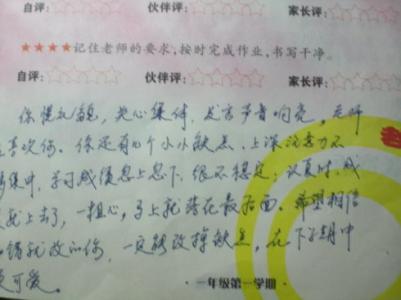 自评:☆☆☆☆☆ 伙伴评:☆☆☆☆☆ 家长评:☆☆☆☆☆
★★★★记住老师的要求,按时完成作业,书写干净。
自评:☆☆☆☆☆ 伙伴评:☆☆☆☆☆ 家长评:☆☆☆☆☆
你懂礼貌,关心集体,发言声音响亮。老师
喜欢你。你还有几个小小缺点,上课注意力不
集中,学习成绩忽上忽下,很不稳定:认真时,成
就上去了,一粗心,马上就落在最后面。希望相信
错就改的你,一定能改掉缺点,在下学期中
更可爱。
一年级第一学期